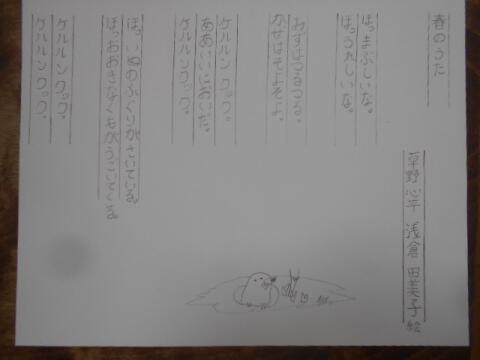 春のうた
草野心平 浅倉田美子 絵
ほっまぶしいな。
ほっうれしいな。
みずはつるつる。
かぜはそよそよ。
ケルルン クック。
ああいいにおいだ。
ケルルン クック。
ほっ いぬのふぐりがさいている。
ほっおおきなくもがうごいてくる。
ケルルン クック。
ケルルン クック。